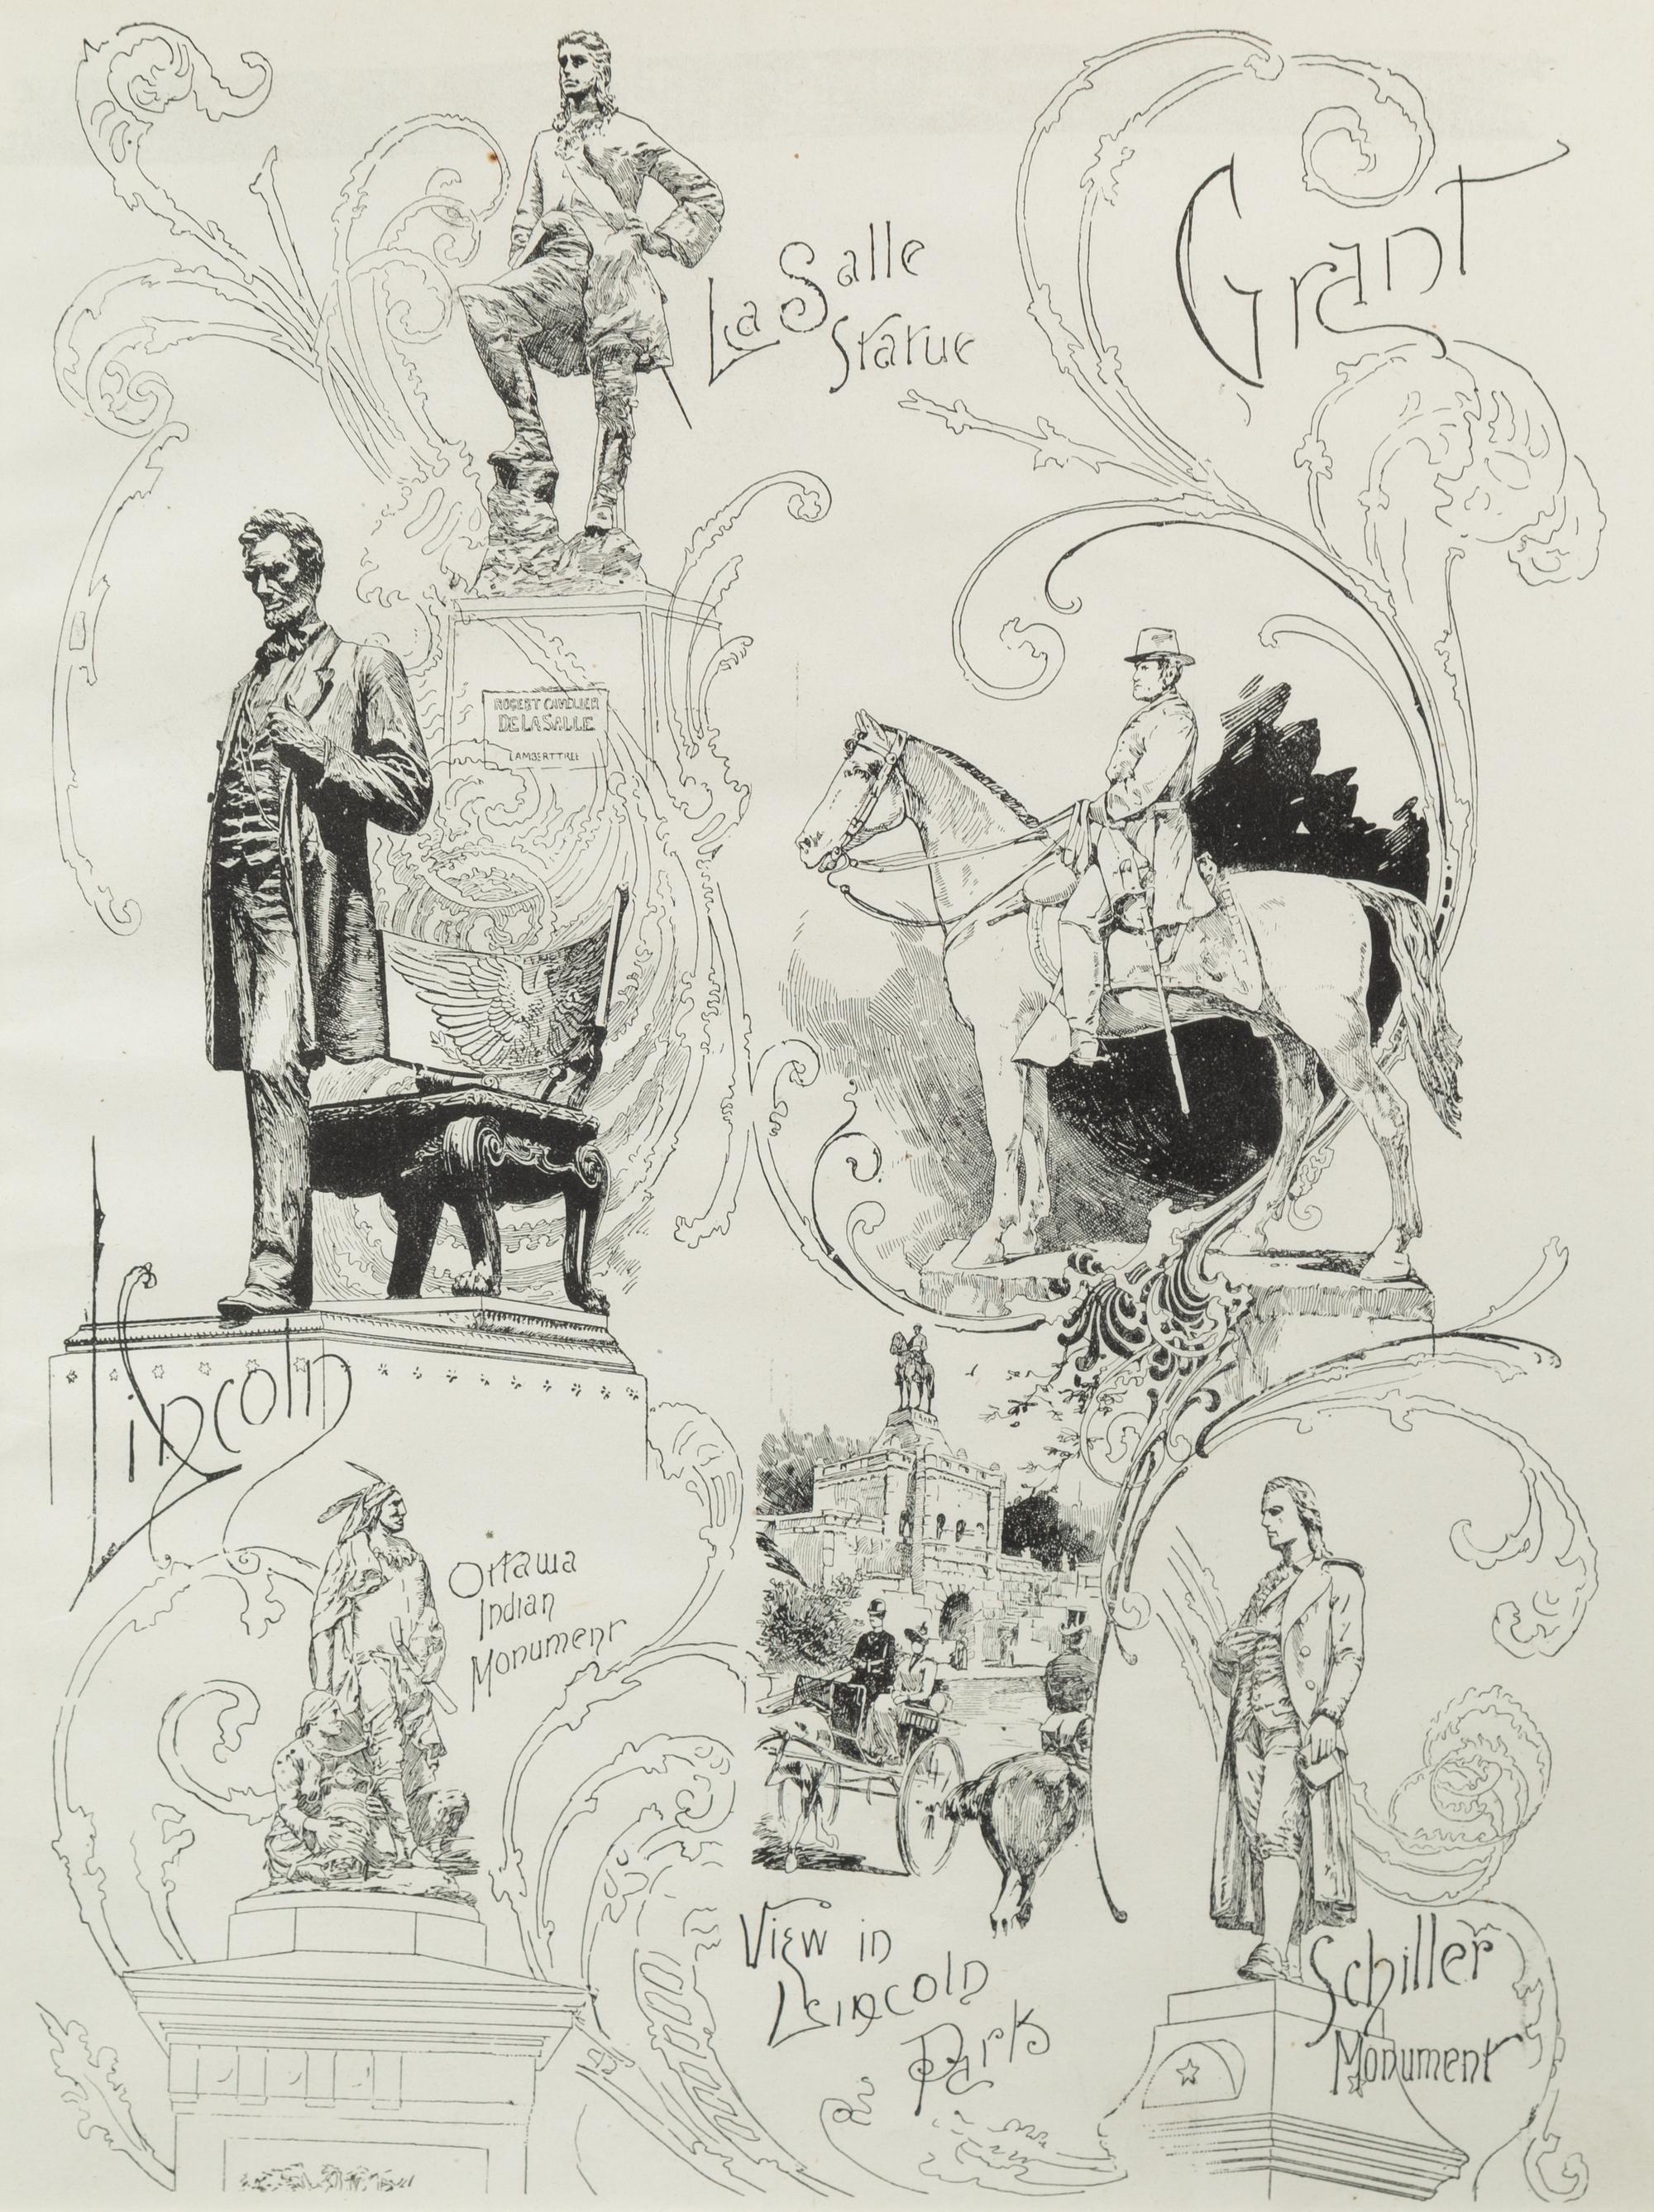 La Salle
Statue
Grant
ROBERT CAVELIER
DE LA SALLE
LAMBERT TREE
Lincoln
GRANT
Ottawa
Indian
Monument
View in
Lincoln
Park
Schiller
Monument